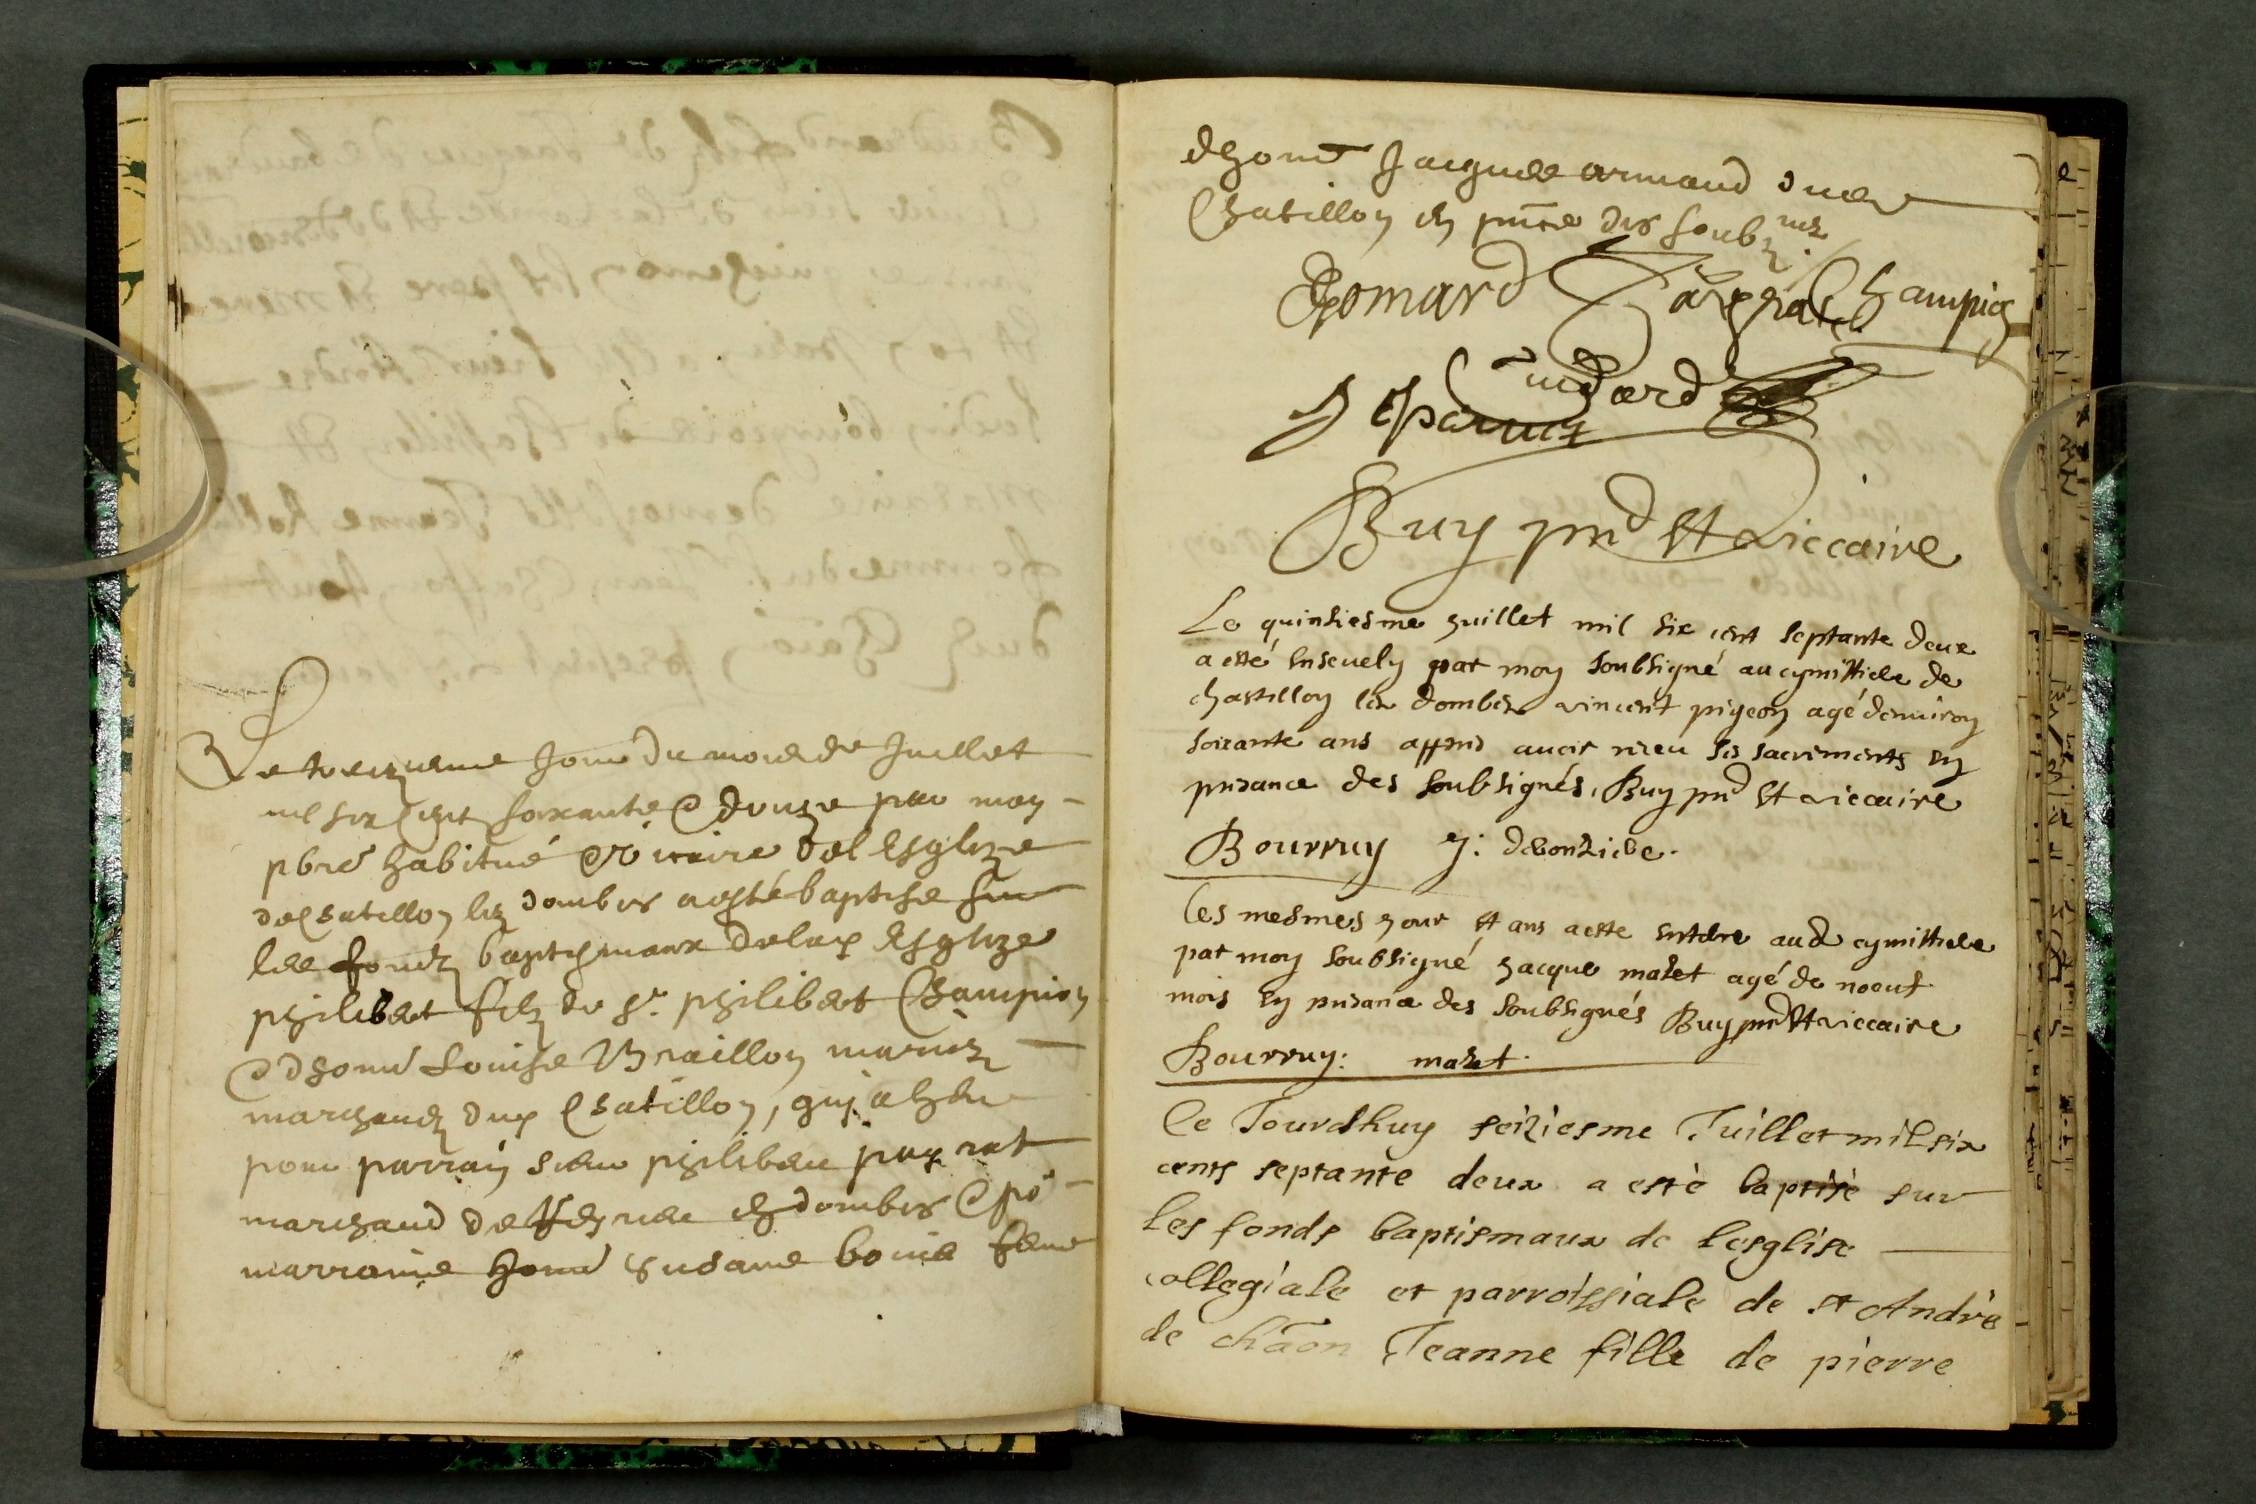 Le treiziesme Jour du mois de Juillet
mil six cent soixante & douze par moy
pbre habitué & vicaire de l Esglize
de Chatillon lez dombes a esté baptisé sur
les fondz baptismaux de lad Esglize
philibert filz de Sr philibert Champion
& dhonn Louise Braillon mariez
marchandz dud Chatillon, qui a heu
pour parrain sieur philibert
marchand de en dombes & po
marraine honn Susanne femme
dhonn Jacques Armand dud
Chatillon en pnce des soubznez
Pomard Champion
Cudard
Buy pnd et viccaire
Le quinsiesme Juillet mil six cent septante deux
a esté ensevely par moy soubsigné au cymittiere de
chastillon les dombes vincent pigeon agé denviron
soixante ans appres avoir receu ses sacrements en
presance des soubsignés, Buy pnd et viccaire
Bourruy J: debonziere.
Les mesmes jour et ans a este enterre aud cymittiere
par moy soubsigné Jacque mazet agé de noeuf
mois en presance des soubsignés Buy pnd et viccaire
Bourruy: mazet.
Ce Jourdhuy seiziesme Juillet mil six
cents septante deux a esté baptisé sur
les fonds baptismaux de lesglise
collegiale et parroissiale de st André
de chãon Jeanne fille de pierre